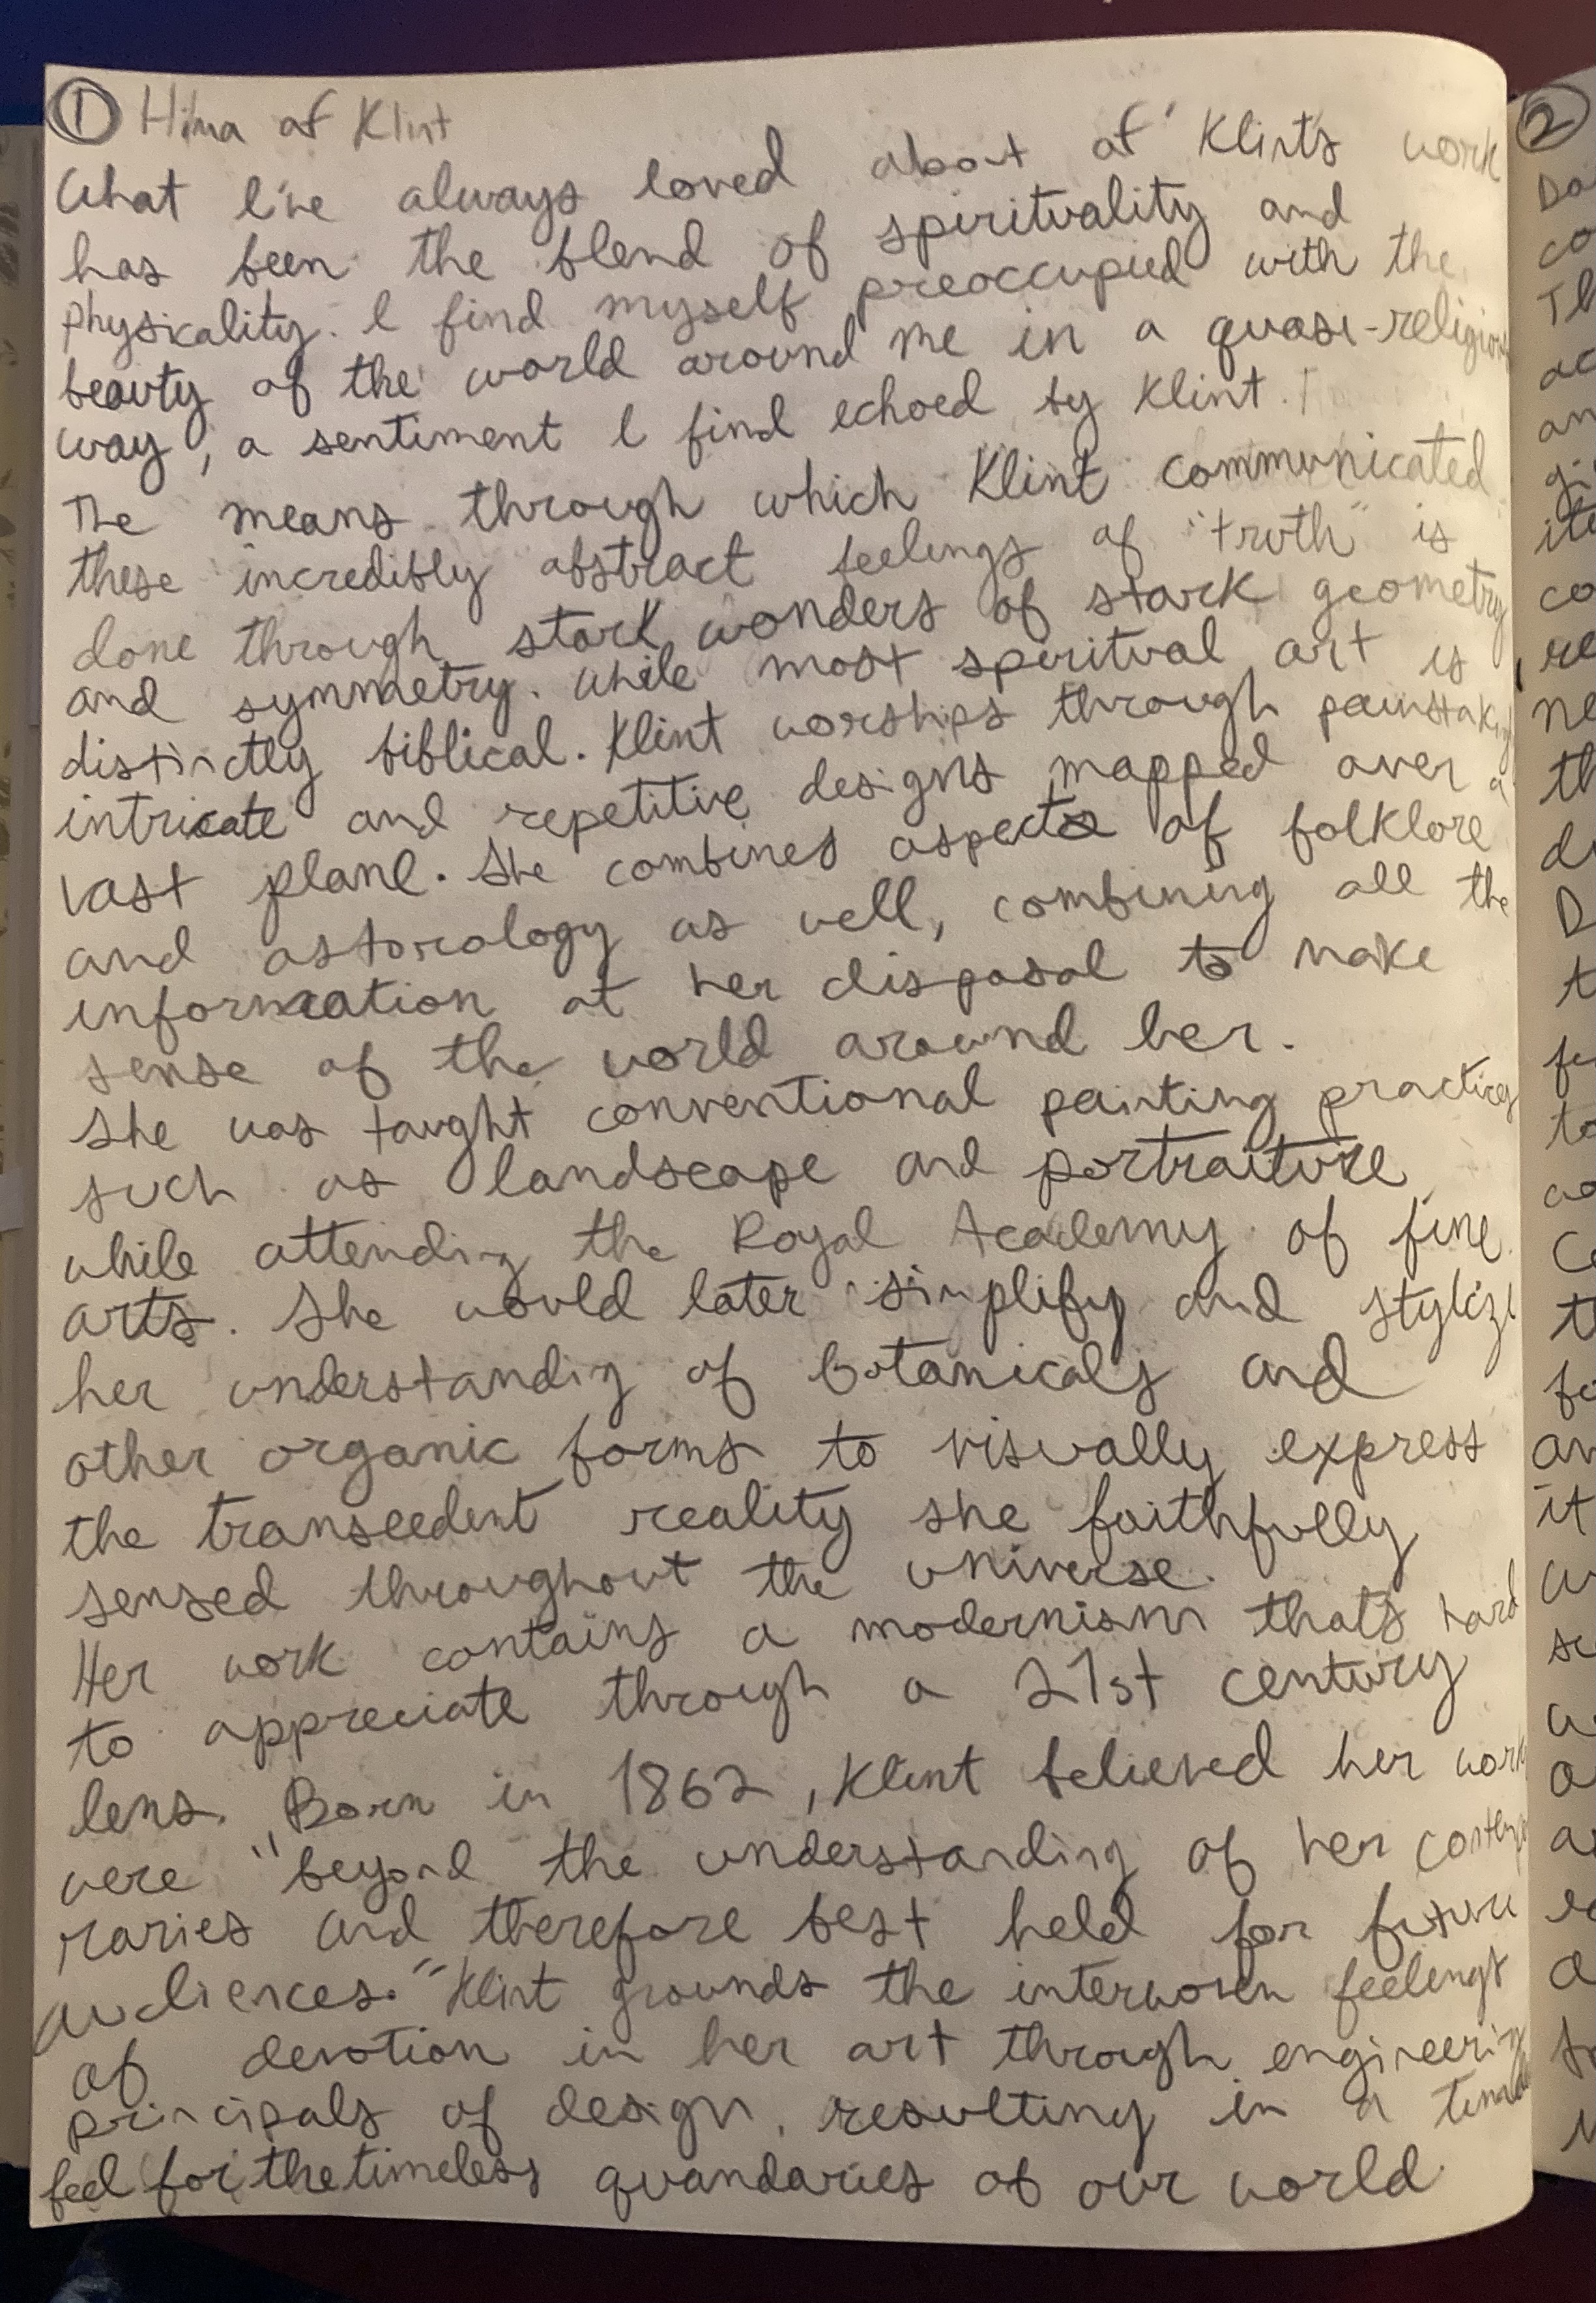 ① Hilma af Klint
What I've always loved about af Klint's work
has been the blend of spirituality and
physicality. I find myself preoccupied with the
beauty of the world around me in a quasi-religious
way, a sentiment I find echoed by Klint.
The means through which Klint communicated
these incredibly abstract feelings of "truth" is
done through stark wonders of stark geometry
and symmetry. While most spiritual art is
distinctly biblical. Klint worships through painstaking
intricate and repetitive designs mapped over a
vast plane. She combines aspects of folklore
and astorology as well, combining all the
information at her disposal to make
sense of the world around her.
She was taught conventional painting practices
such as landscape and portraiture
while attending the Royal Academy of fine
arts. She would later simplify and stylize
her understanding of botanicals and
other organic forms to visually express
the transcedent reality she faithfully
sensed throughout the universe.
Her work contains a modernism that's hard
to appreciate through a 21st century
lens. Born in 1862, Klint believed her work
were "beyond the understanding of her contempo
raries and therefore best held for future
audiences." Klint grounds the interwoven feelings
of devotion in her art through engineering
principals of design, resulting in a
feel for the timeless quandaries of our world
②